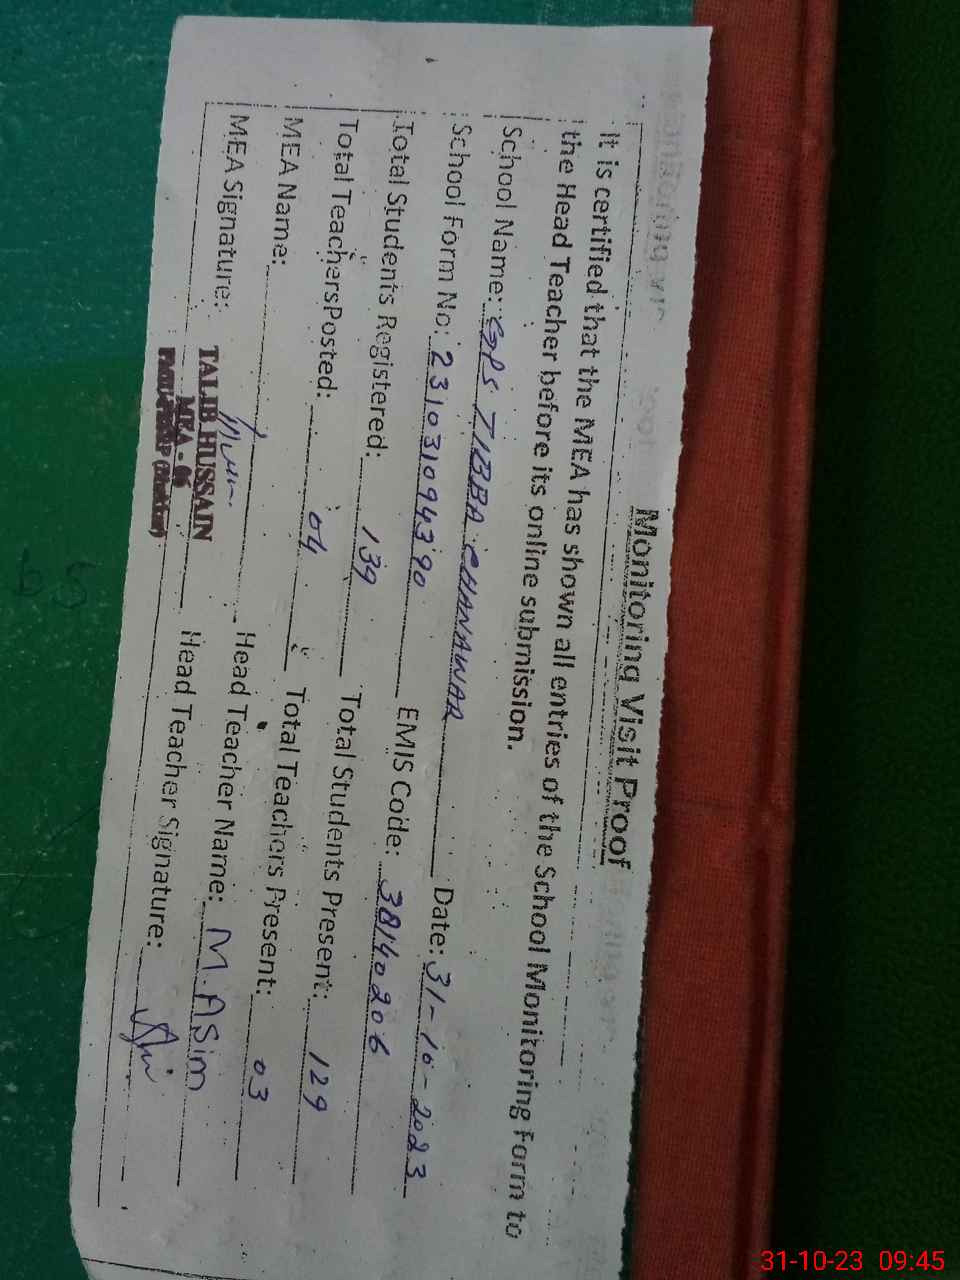 Monitoring Visit Proof
It is certified that the MEA has shown all entries of the School Monitoring Form to
the Head Teacher before its online submission.
School Name: GPS TIBBA CHANAWAR Date: 31-10-2023
School Form No: 231031094390 EMIS Code: 38140206
Total Students Registered: 139 Total Students Present: 129
Total TeachersPosted: 04 Total Teachers Present: 03
MEA Name: Head Teacher Name: M. ASim
MEA Signature: Head Teacher Signature:
TALIB HUSSAIN
MEA - 06
31-10-23 09:45